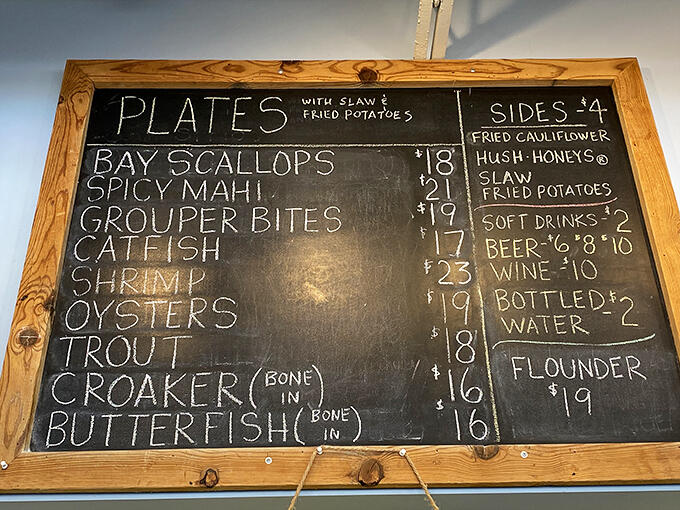 PLATES WITH SLAW &
FRIED POTATOES
BAY SCALLOPS $18
SPICY MAHI $21
GROUPER BITES $19
CATFISH $17
SHRIMP $23
OYSTERS $19
TROUT $18
CROAKER (BONE IN) $16
BUTTERFISH (BONE IN) $16
SIDES - $4
FRIED CAULIFLOWER
HUSH·HONEYS®
SLAW
FRIED POTATOES
SOFT DRINKS - $2
BEER - $6 $8 $10
WINE - $10
BOTTLED
WATER - $2
FLOUNDER
$19